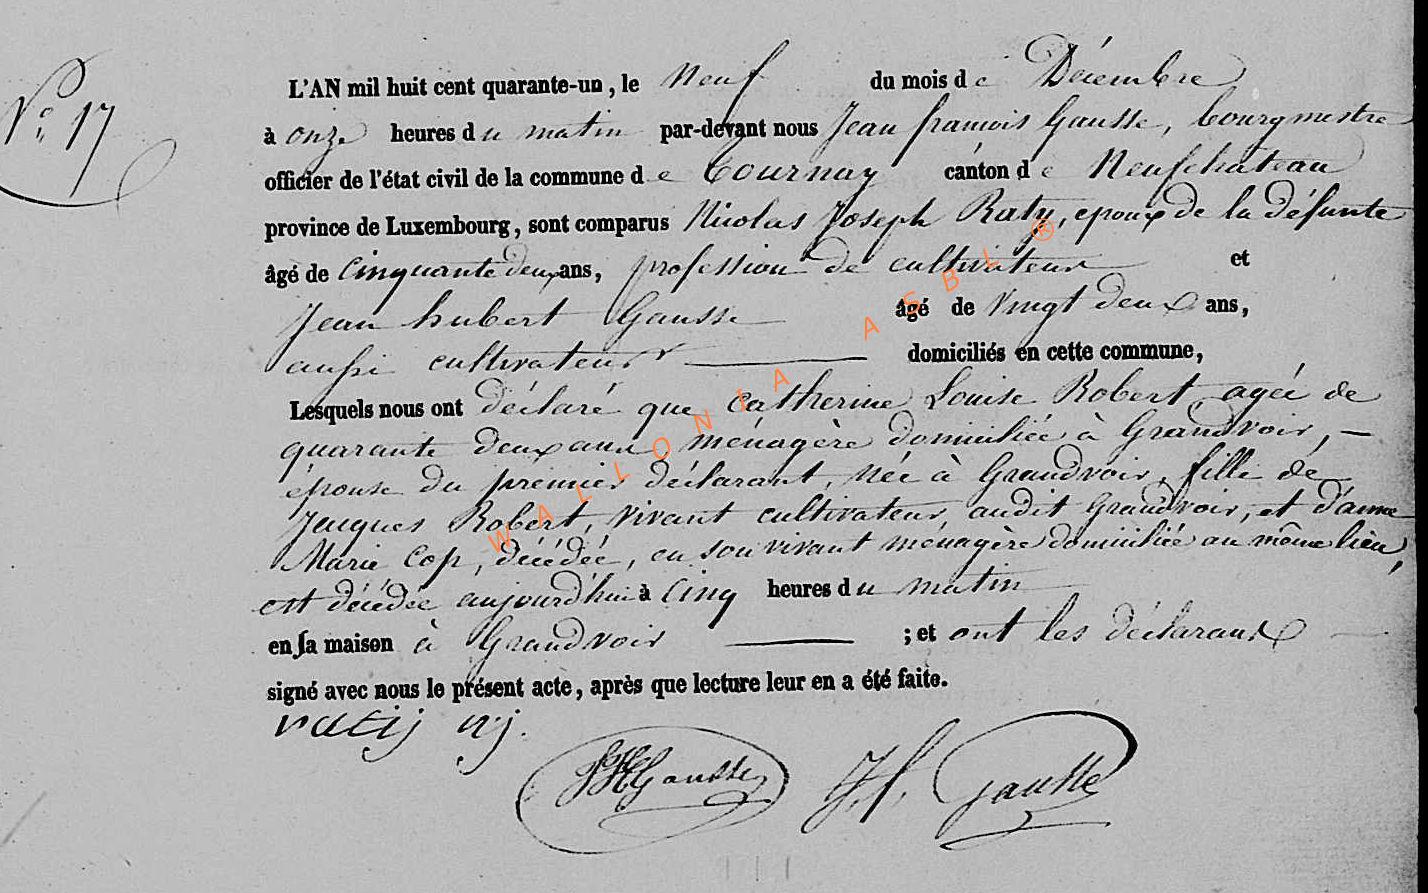 N.° 17
L'AN mil huit cent quarante-un, le Neuf du mois de Décembre
à onze heures du matin par-devant nous Jean françois Gausse, bourgmestre
officier de l'état civil de la commune de Tournay canton de Neufchateau
province de Luxembourg, sont comparus Nicolas Joseph Raty, epoux de la défunte
âgé de cinquante deux ans, profession de cultivateur et
Jean hubert Gausse âgé de vingt deux ans,
aussi cultivateur domiciliés en cette commune,
Lesquels nous ont déclaré que Catherine Louise Robert agée de
quarante deux ans, ménagère domiciliée à Grandvoir, —
épouse du premier déclarant, née à Grandvoir, fille de
Jacques Robert, vivant cultivateur, audit Grandvoir, et d'anne
Marie Cop, décédée, en son vivant ménagère domiciliée au même lieu,
est décédée aujourd'hui à cinq heures du matin
en sa maison à Grandvoir ; et ont les déclarans
signé avec nous le présent acte, après que lecture leur en a été faite.
ratij nj.
JHGausse
J. f. Gausse
WALLONIA ASBL ®